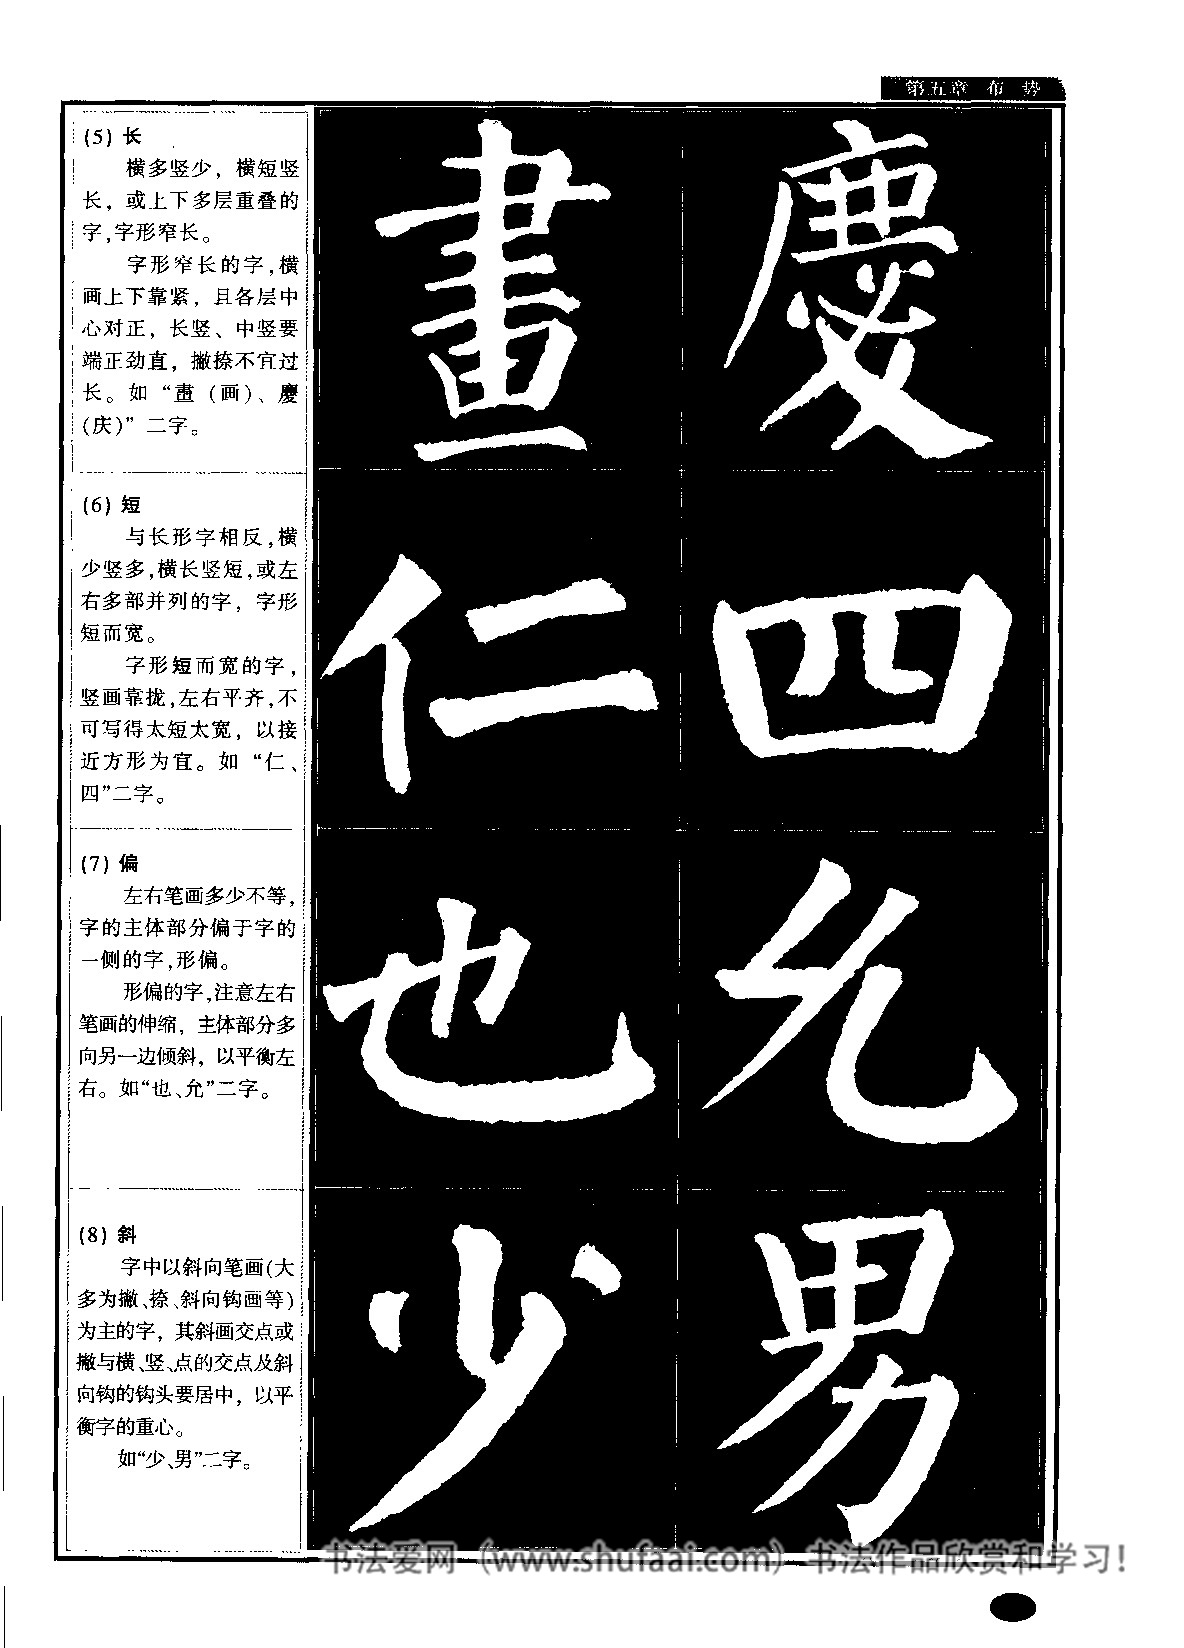 第五章 布 势
(5) 长
横多竖少，横短竖
长，或上下多层重叠的
字,字形窄长。
字形窄长的字,横
画上下靠紧，且各层中
心对正，长竖、中竖要
端正劲直，撇捺不宜过
长。如“畫（画)、慶
(庆)”二字。
畫 慶
(6) 短
与长形字相反,横
少竖多,横长竖短,或左
右多部并列的字，字形
短而宽。
字形短而宽的字，
竖画靠拢,左右平齐,不
可写得太短太宽，以接
近方形为宜。如“仁、
四”二字。
仁 四
(7) 偏
左右笔画多少不等，
字的主体部分偏于字的
一侧的字,形偏。
形偏的字,注意左右
笔画的伸缩，主体部分多
向另一边倾斜，以平衡左
右。如“也、允”二字。
也 允
(8) 斜
字中以斜向笔画(大
多为撇、捺、斜向钩画等)
为主的字，其斜画交点或
撇与横、竖、点的交点及斜
向钩的钩头要居中，以平
衡字的重心。
如“少、男”二字。
少 男
书法爱网（www.shufaai.com）书法作品欣赏和学习！